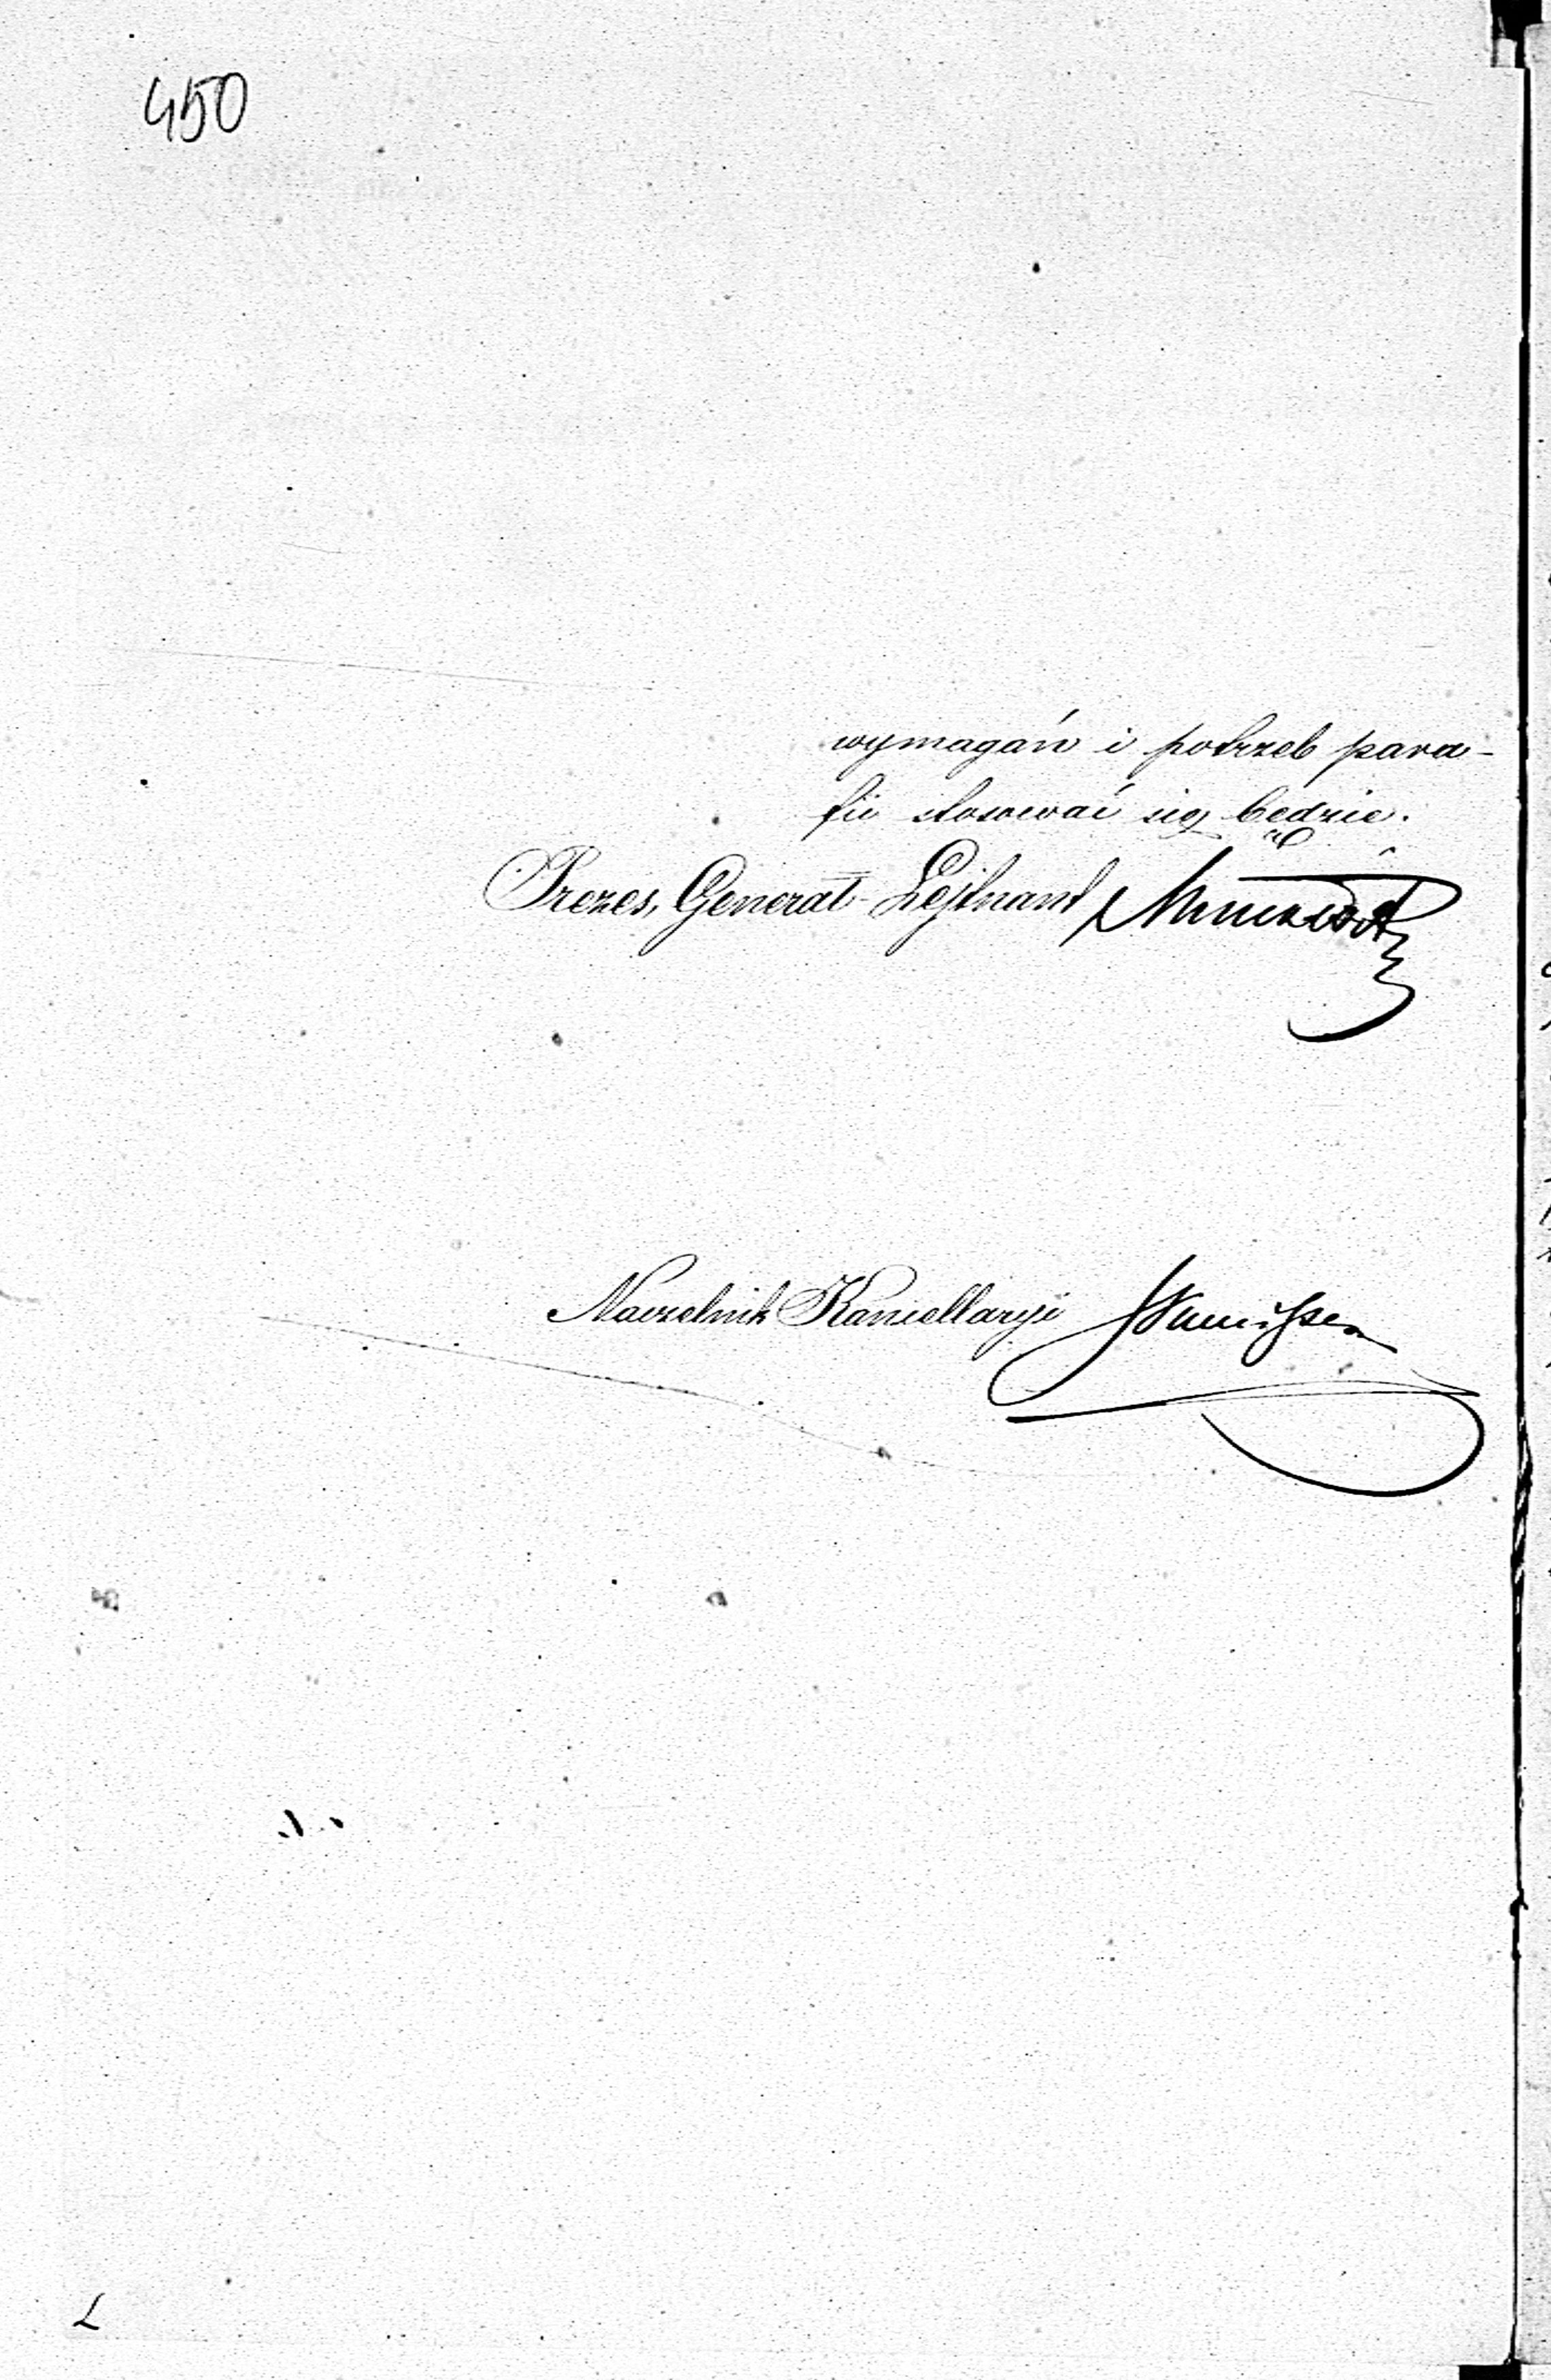 450
wymagań i potrzeb para-
fii stosować się będzie.
Prezes, Generał-Lejtnant
Naczelnik Kancellaryi
L